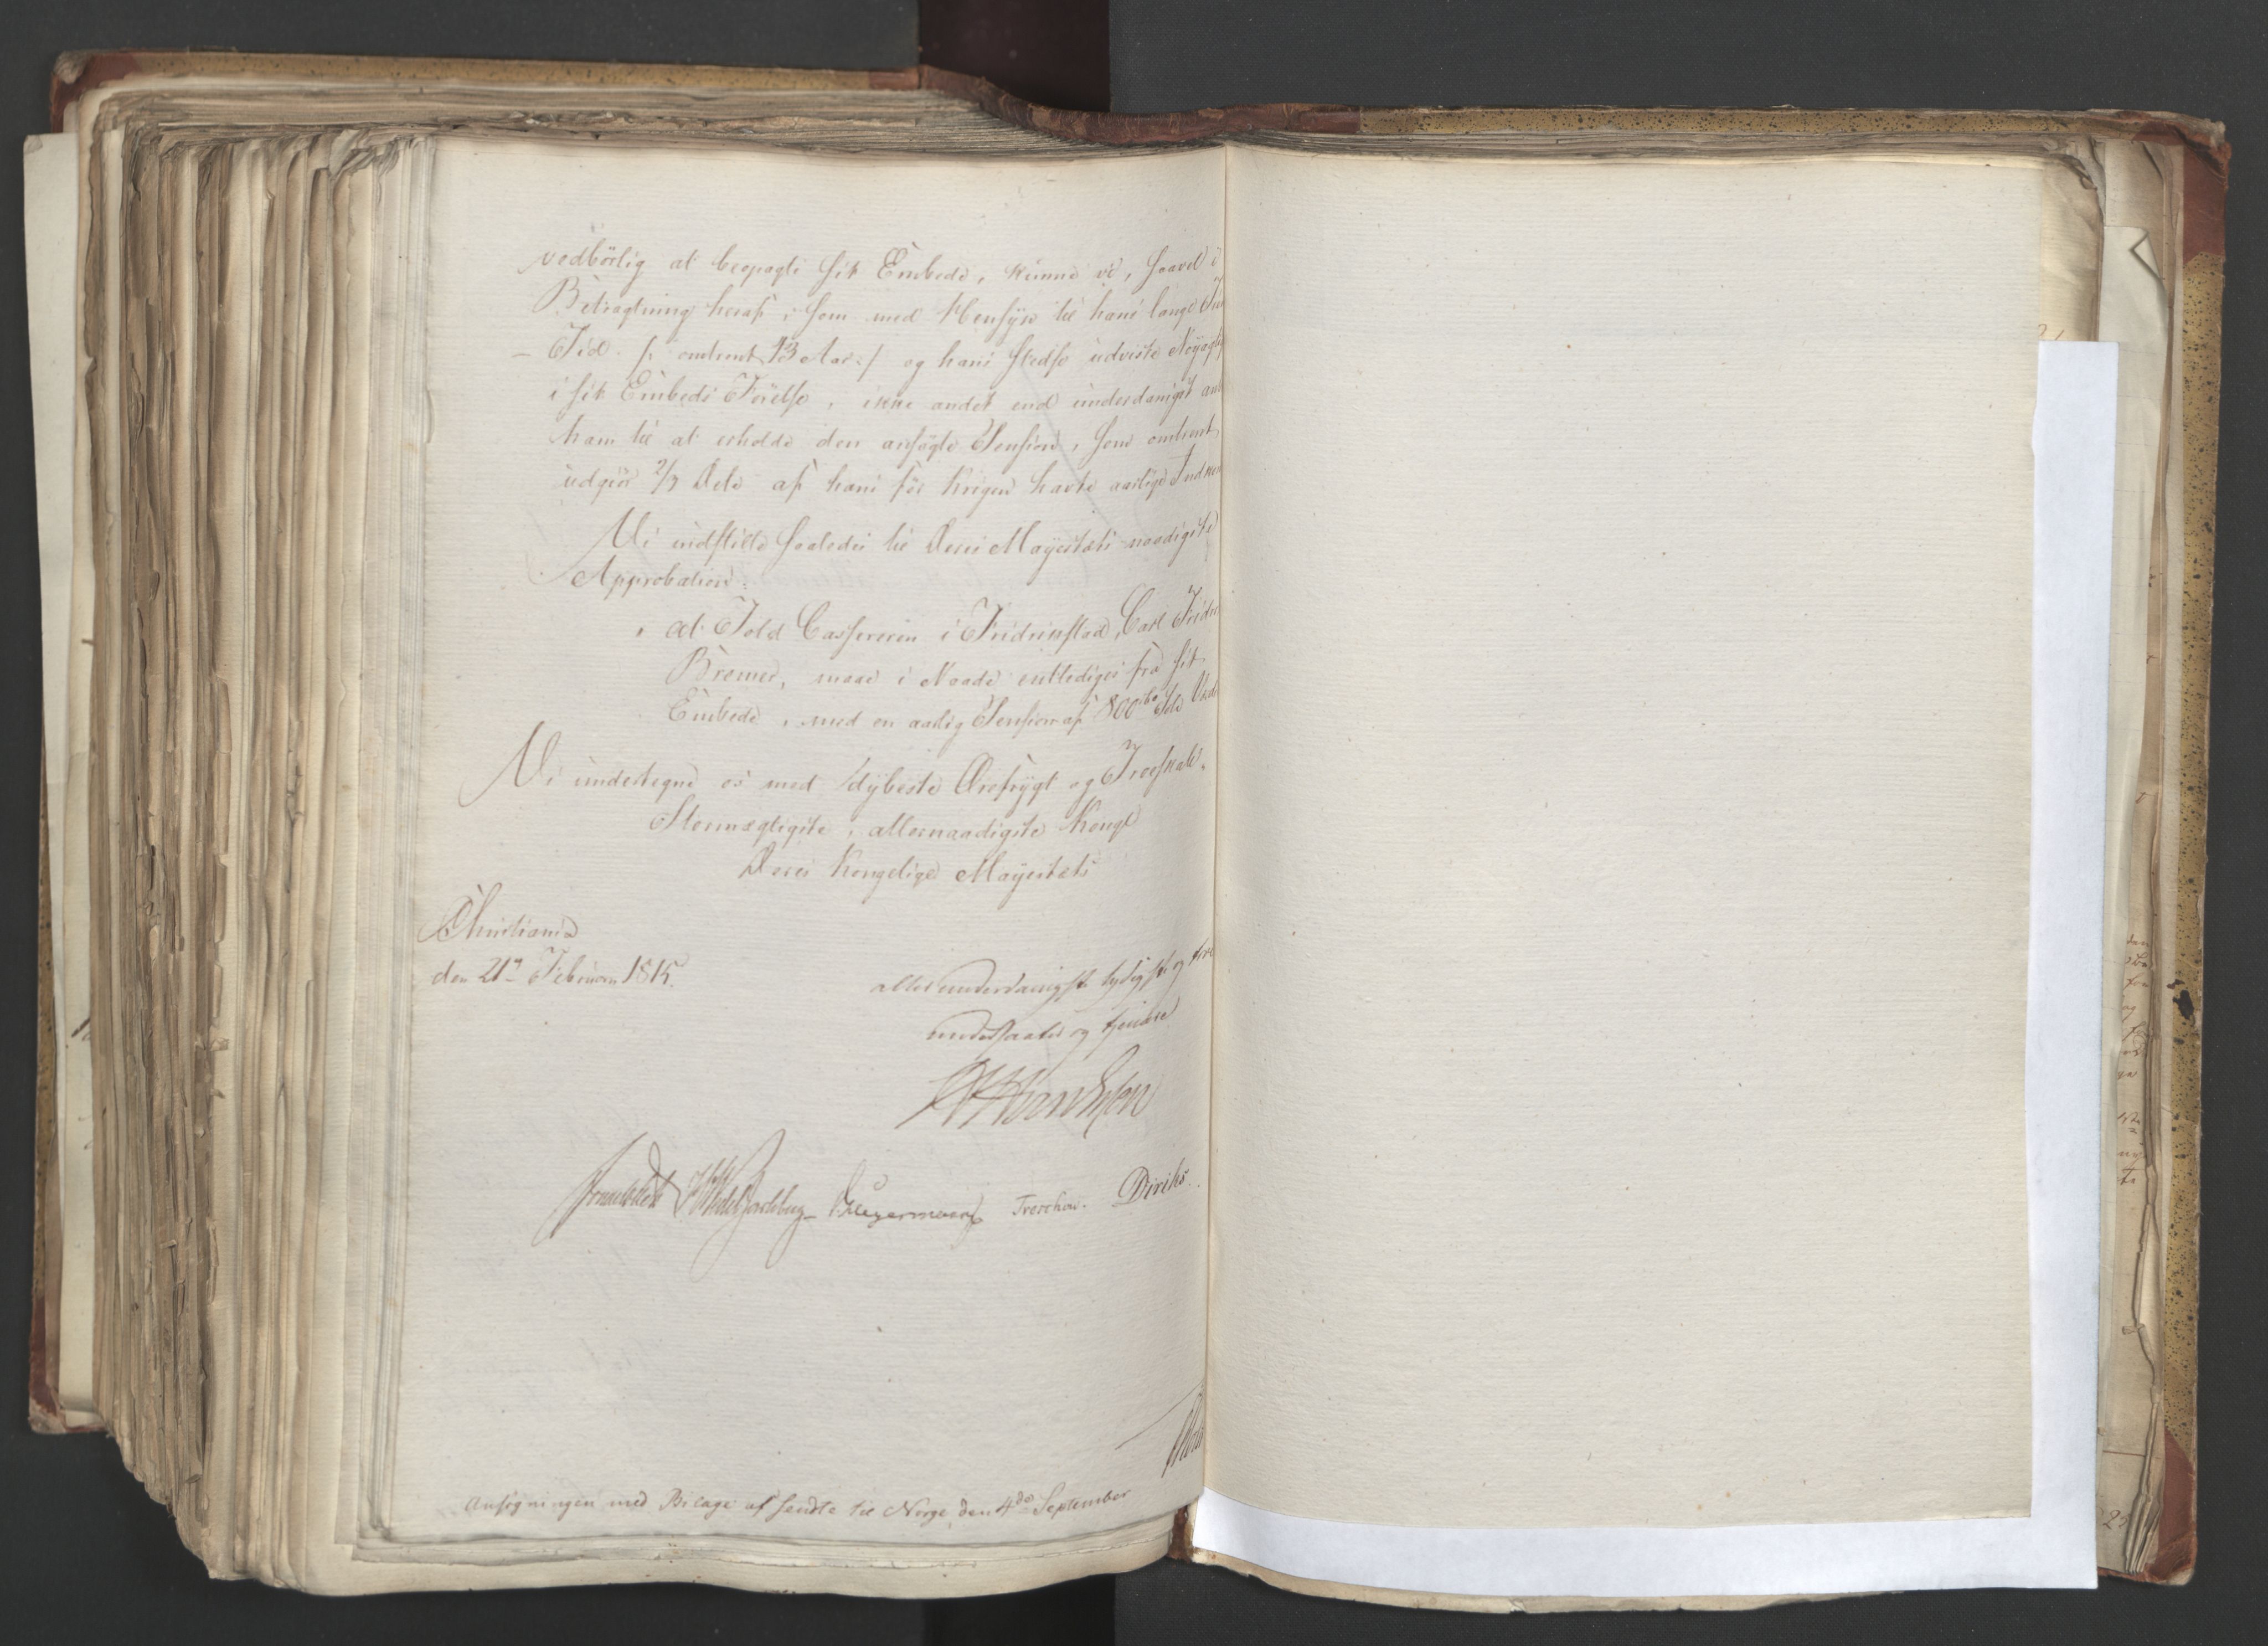 vedbørlig at beopagte sit Embede, kunne vi, saavel i
Betragtning heraf, som med Hensyn til hans lange
Tid /: omtrent 43 Aar :/ og hans stedse udviste Nøyagtig
i sit Embeds Førelse, ikke andet end underdanigst an
ham til at erholde den ansøgte Pension, som omtrent
udgiør 2/3 Dele af hans før Krigen havte aarlige Indkom
Vi indstille saaledes til Deres Mayestæts naadigste
Approbation:
at Told Cassereren i Fridrikstad, Carl Fridr
Bremer, maae i Naade entlediges fra sit
Embede, med en aarlig Pension af 800
Vi undertegne os med dybeste Ærefrygt og Troeskab.
Stormægtigste, allernaadigste Konge
Deres Kongelige Mayestæts
Christiania
den 21de Februar 1815.
allerunderdanigste lydigste og troe
undersaatter og tjenere
Sommerhielm HWedel Jarlsberg Treschow. Diriks.
Ansøgningen med Bilage afsendte til Norge den 4de September